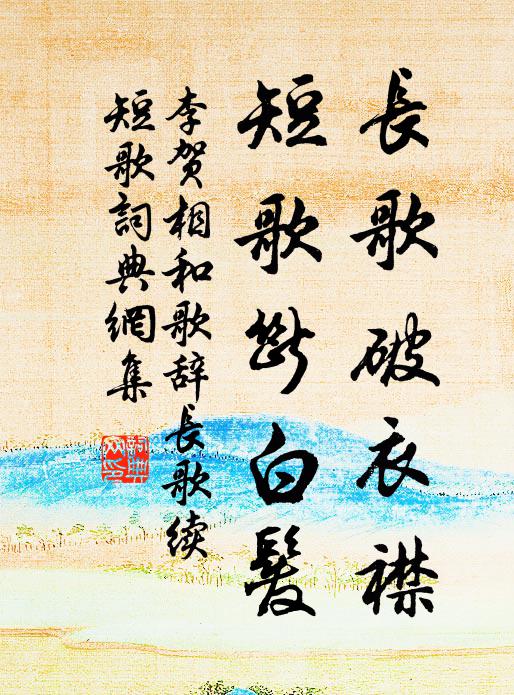 長歌破衣襟
短歌斷白髮
李贺相和歌辞長歌续
短歌詞典網集
詞典網印